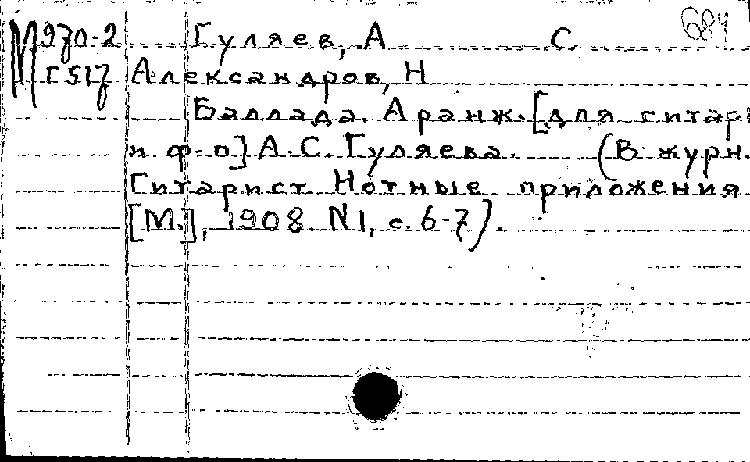 М970-2 Гуляев, А С. 684
Г517 Александров, Н
Баллада. Аранж. [для гитары
и ф-о] А.С. Гуляева. (В журн.
Гитарист. Нотные приложения.
[М.], 1908. N1, с. 6-7).